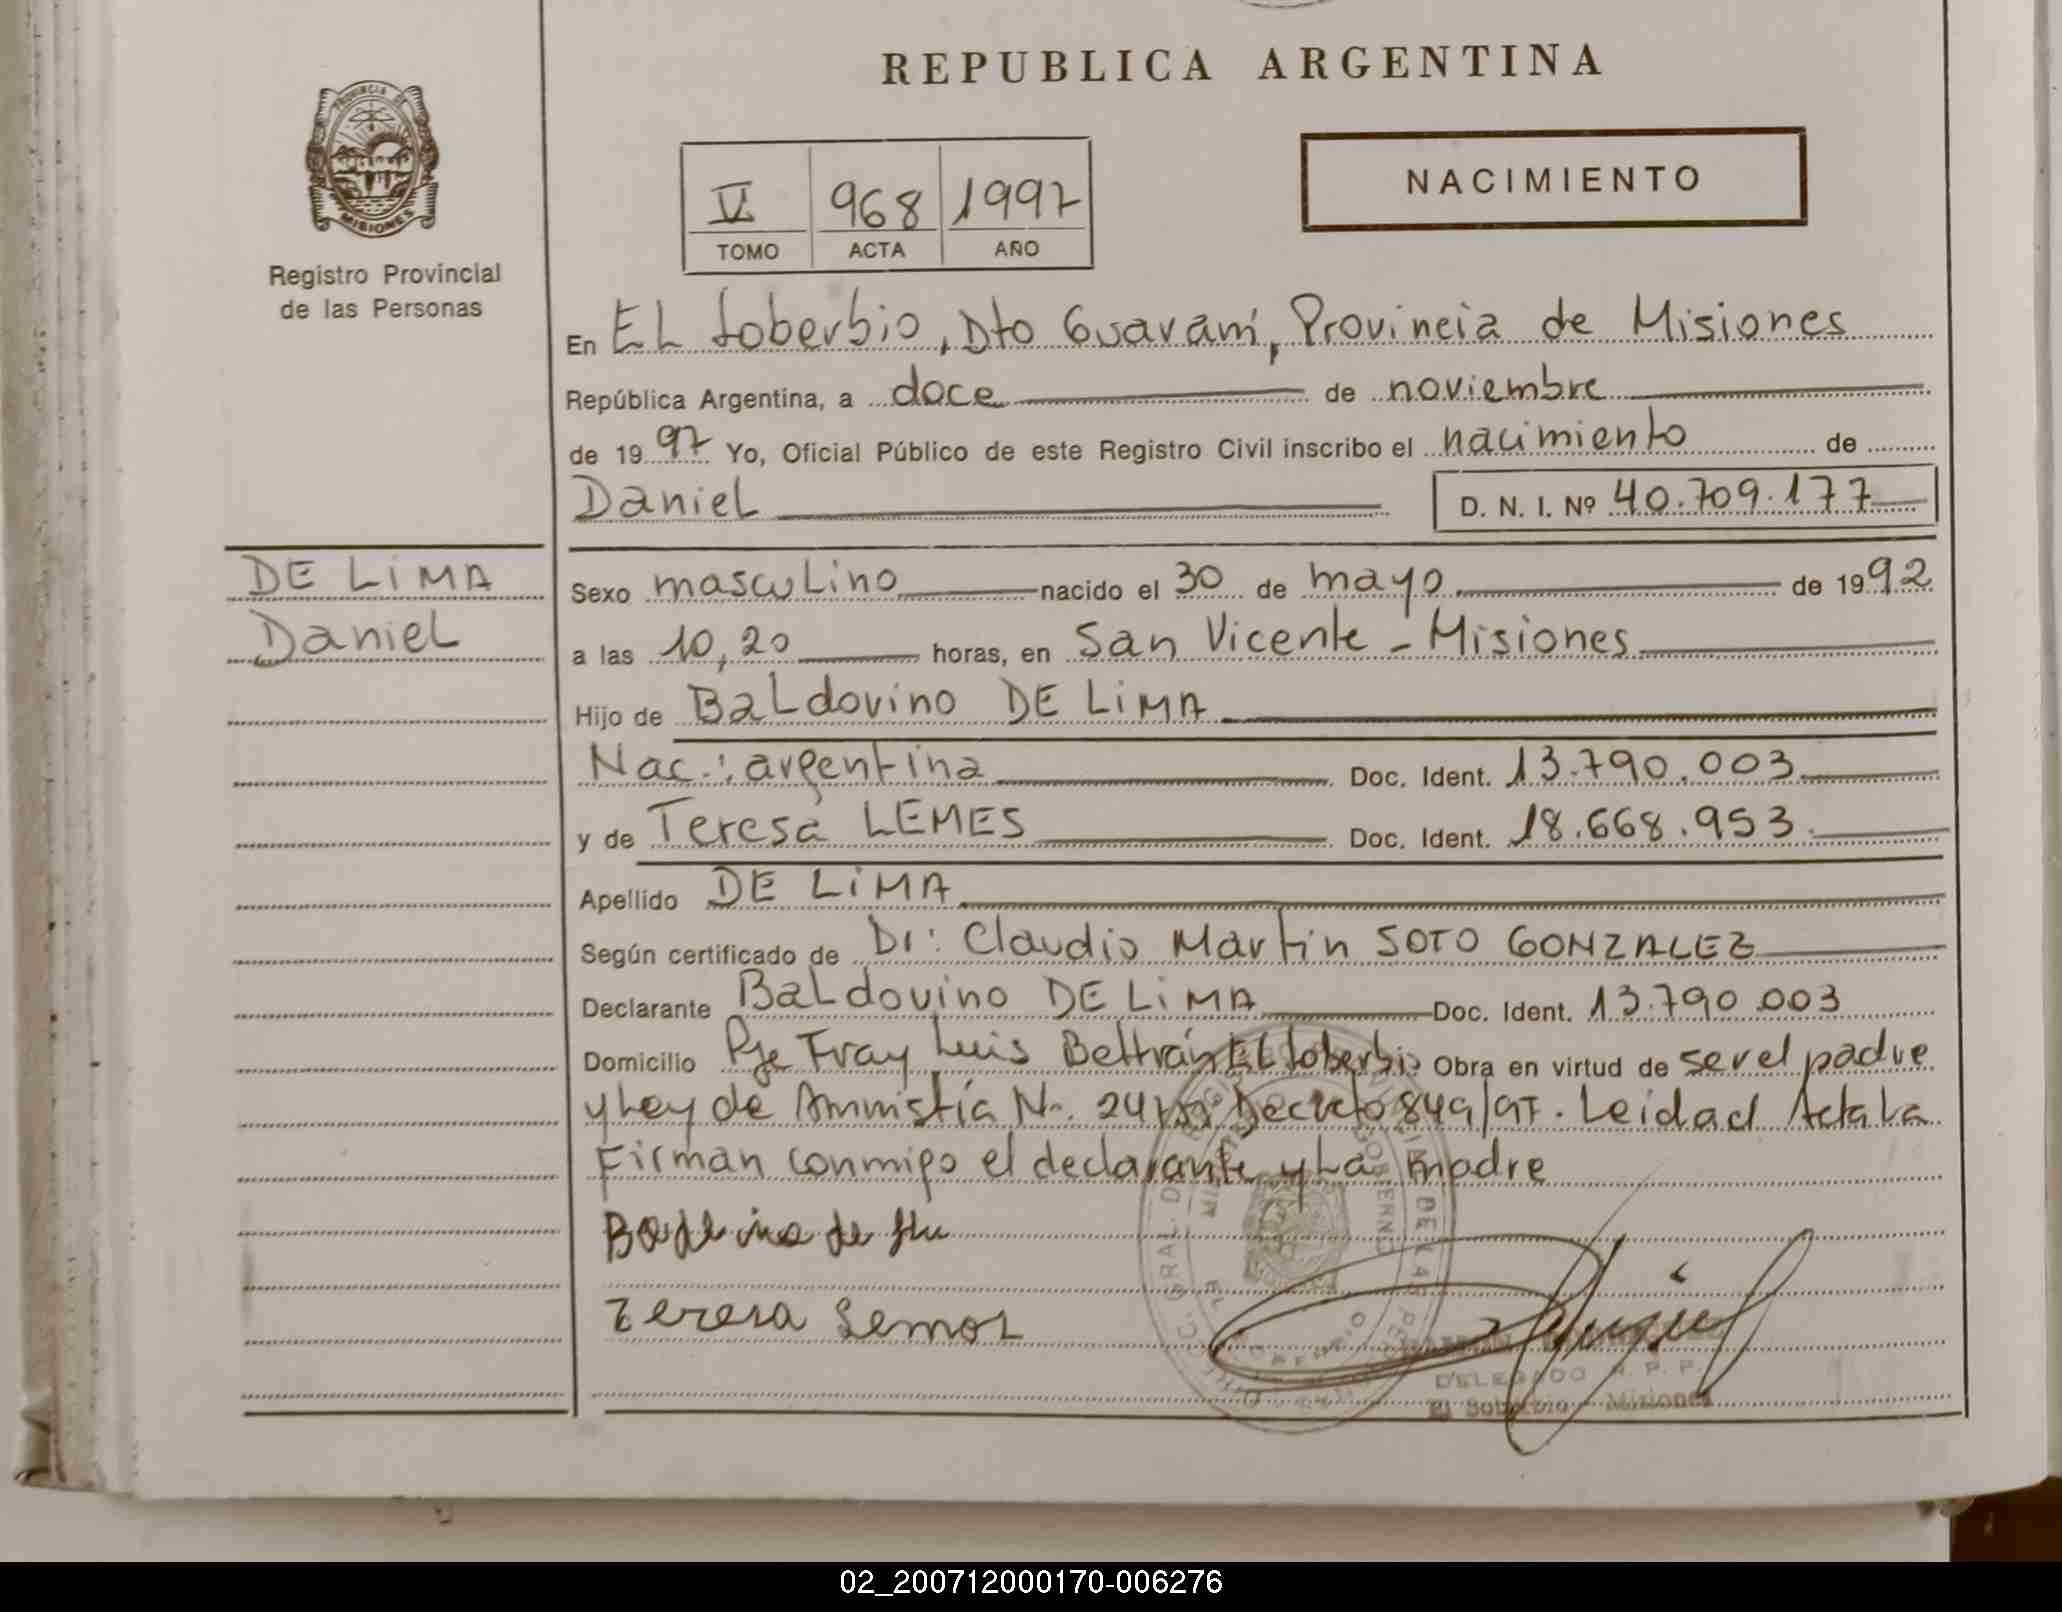 REPUBLICA ARGENTINA
PROVINCIA DE
MISIONES
Registro Provincial
de las Personas
V 968 1997
TOMO ACTA AÑO
NACIMIENTO
En EL Soberbio, Dto Guaraní, Provincia de Misiones
República Argentina, a doce de noviembre
de 1997 Yo, Oficial Público de este Registro Civil inscribo el nacimiento de
Daniel D. N. I. Nº 40.709.177
DE LiMA
Daniel
Sexo masculino nacido el 30 de mayo de 1992
a las 10,20 horas, en San Vicente - Misiones
Hijo de Baldovino DE LiMA
Nac.: argentina Doc. Ident. 13.790.003
y de Teresa LEMES Doc. Ident. 18.668.953
Apellido DE LiMA
Según certificado de Dr: Claudio Martin SOTO GONZALEZ
Declarante Baldovino DE LiMA Doc. Ident. 13.790.003
Domicilio Pje Fray Luis Beltrán EL Soberbio Obra en virtud de ser el padre
y Ley de Amnistía Nº. Decreto 849/97. Leidad Acta La
Firman conmigo el declarante y La madre
Teresa Lemos
DELEGADO R. P. P.
El Soberbio - Misiones
02_200712000170-006276